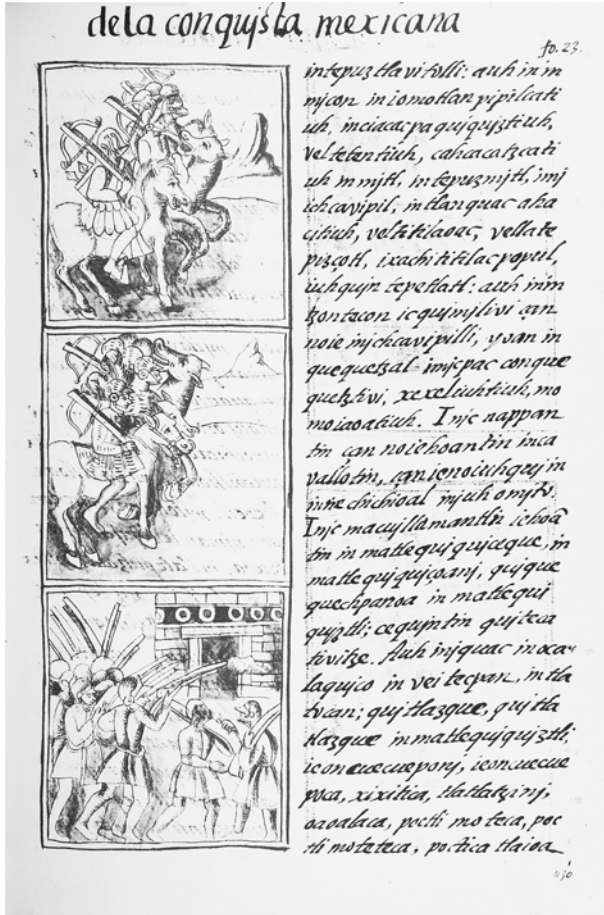 dela conquista mexicana
fo. 23.
intepuztlavitolli: auh in im
mjcon in iomotlan pipilcati
uh, inciacacpa quiquiztiuh,
vel tetentiuh, cahcacatzcati
uh in mjtl, in tepuzmjtl, imj
ichcavipil, intlanquac aha
citiuh, veltitilaoac, vellate
pizcotl, ixachi titilacpopul,
iuhqujn tepetlatl: auh inin
tzontecon ic quimjlivi çan
noie injchcavipilli, yoan in
quequetzal imjcpac conque
quetztivi, xexeliuhtiuh, mo
moiaoatiuh. Injc nappan
tin çan noiehoantin inca
vallotin, çan ie noiuhquj in
inne chichioal mjuh omito.
Injc macujllamantlin iehoã
tin in matlequiqujceque, in
matlequiquiçoanj, quique
quechpanoa in matlequi
qujztli; cequjntin quiteca
tivitze. Auh injquac inoca
laqujco in vei tecpan, in tla
tvcan; quitlazque, quitla
tlazque in matlequiqujztli:
ieoncuecueponj, ieoncuecue
poca, xixitica, tlatlatzinj,
oaoalaca, poctli moteca, poc
tli moteteca, poctica tlaioa
430